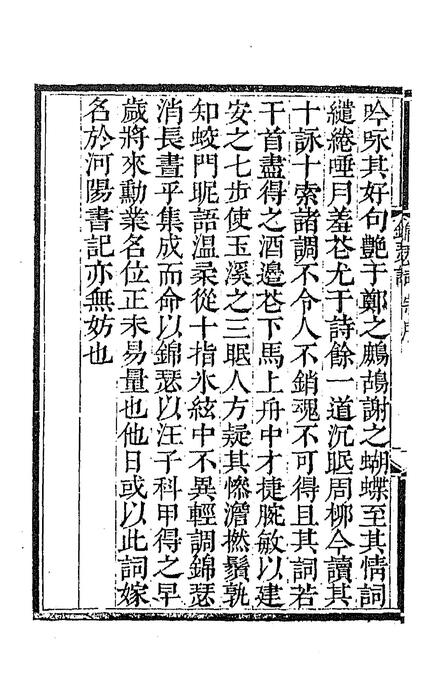 吟咏其好句艷于鄭之鷓鴣謝之蝴蝶至其情詞
繾綣唾月羞花尤于詩餘一道沉眠周柳今讀其
十詠十索諸調不令人不銷魂不可得且其詞若
干首盡得之酒邊花下馬上舟中才捷腕敏以建
安之七步使玉溪之三眠人方疑其慘澹撚鬚孰
知蛟門昵語溫柔從十指氷絃中不異輕調錦瑟
消長晝乎集成而命以錦瑟以汪子科甲得之早
歲將來勳業名位正未易量也他日或以此詞嫁
名於河陽書記亦無妨也
錦瑟詞